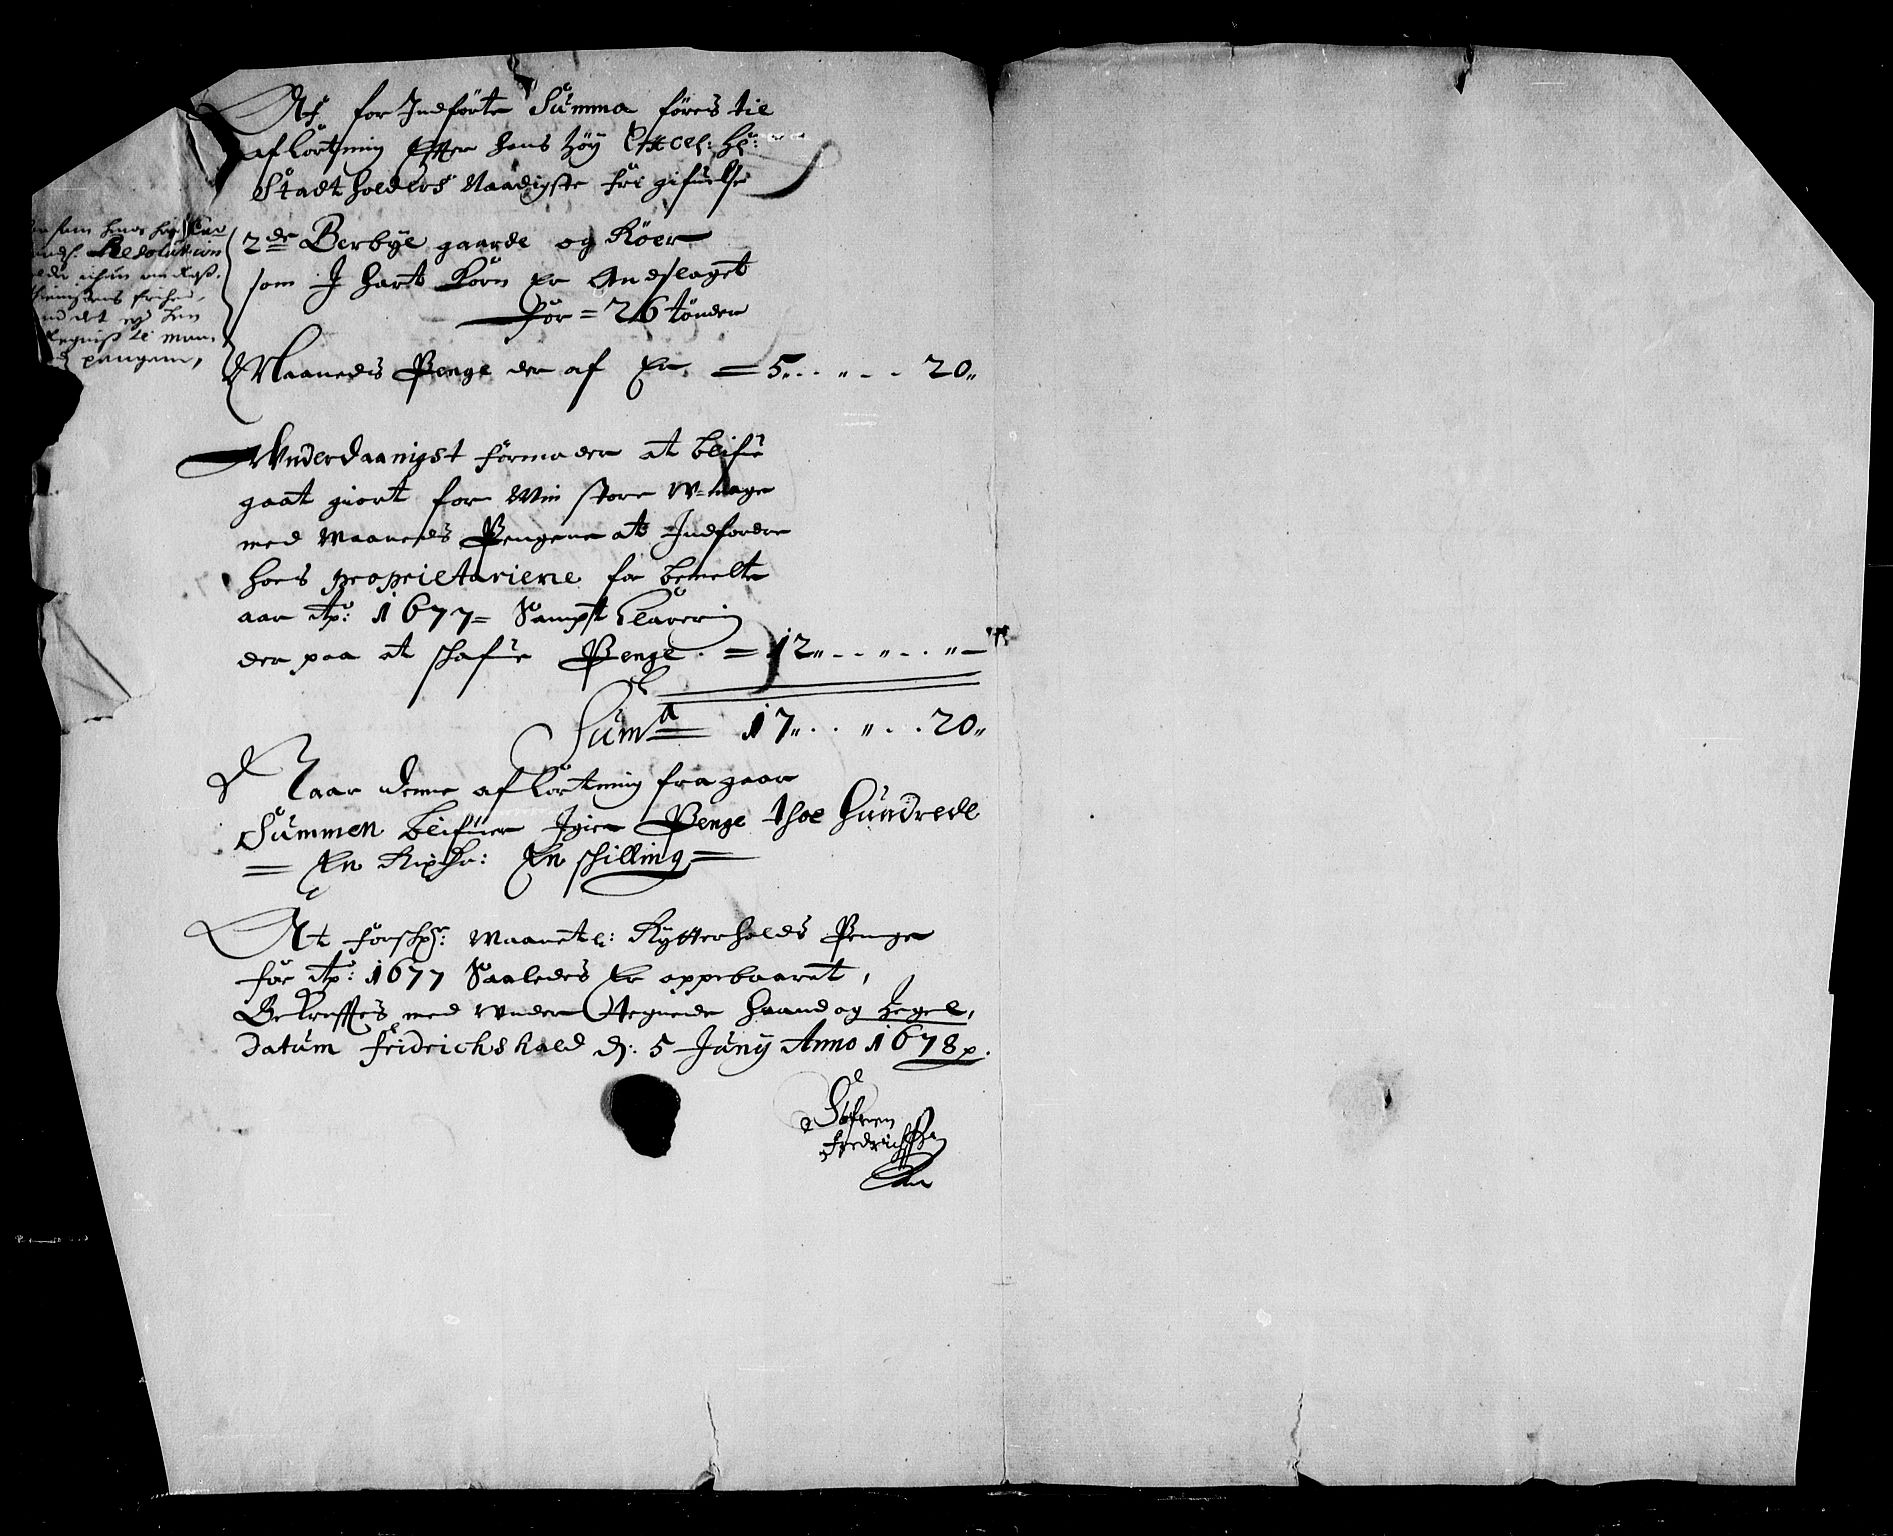 Af for Indförte Summa föres til
afkortning Efter hans Höÿ Excel: Hr:
Stadtholders Naadigste frj gifuelse
2de Berbÿe gaarde og Röer
som J hart Korn Er Andslaget
för = 26 tönder
Maaneds Penge der af Er = 5 " " 20 "
Resolution
frihed
det eÿ
pengene,
Vnderdaanigst formoder at blifue
gaat giort for Min store W-mage
med Maaneds Pengene at Indfordre
hoes proprietarierne for bemelte
aar Ao: 1677 = Sampt Clarering
der paa at schafue Penge = 12 " " "
Suma = 17 " " 20 "
Naar denne afkortning fragaar
Summen blifuer Igien Penge thoe Hundrede
= En Rixdr: En schilling =
At forschr: Maanetl: Rytterholds Penge
för Ao: 1677 Saaledes Er oppebaaret,
Bekrefftes med Vnder Tegnede Haand og Zegel,
Datum Fridrichshald d: 5 Junÿ Anno 1678
Söfren
Fredrichssen